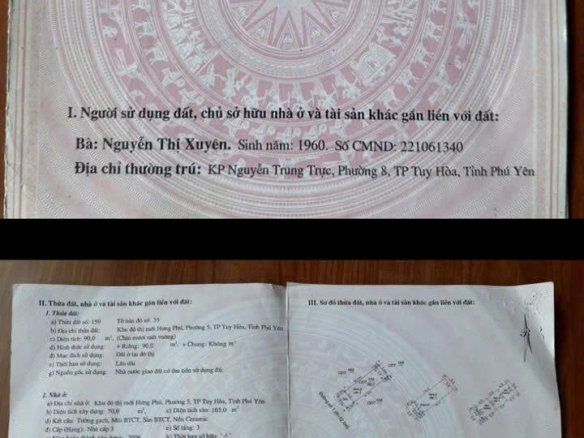 I. Người sử dụng đất, chủ sở hữu nhà ở và tài sản khác gắn liền với đất:
Bà: Nguyễn Thị Xuyên. Sinh năm: 1960. Số CMND: 221061340
Địa chỉ thường trú: KP Nguyễn Trung Trực, Phường 8, TP Tuy Hòa, Tỉnh Phú Yên
II. Thửa đất, nhà ở và tài sản khác gắn liền với đất:
1. Thửa đất:
a) Thửa đất số: 150 Tờ bản đồ số: 35
b) Địa chỉ thửa đất: Khu đô thị mới Hưng Phú, Phường 5, TP Tuy Hòa, Tỉnh Phú Yên
c) Diện tích: 90,0 m², (Chín mươi mét vuông)
d) Hình thức sử dụng: + Riêng: 90,0 m²; + Chung: Không m²
đ) Mục đích sử dụng: Đất ở tại đô thị
e) Thời hạn sử dụng: Lâu dài
g) Nguồn gốc sử dụng: Nhà nước giao đất có thu tiền sử dụng đất.
2. Nhà ở:
a) Địa chỉ nhà ở: Khu đô thị mới Hưng Phú, Phường 5, TP Tuy Hòa, Tỉnh Phú Yên
b) Diện tích xây dựng: 70,0 m², c) Diện tích sàn: 165,0 m²
d) Kết cấu: Tường gạch, Mái BTCT, Sàn BTCT, Nền Ceramic
đ) Cấp (Hạng): Nhà cấp 3 e) Số tầng: 3
III. Sơ đồ thửa đất, nhà ở và tài sản khác gắn liền với đất: